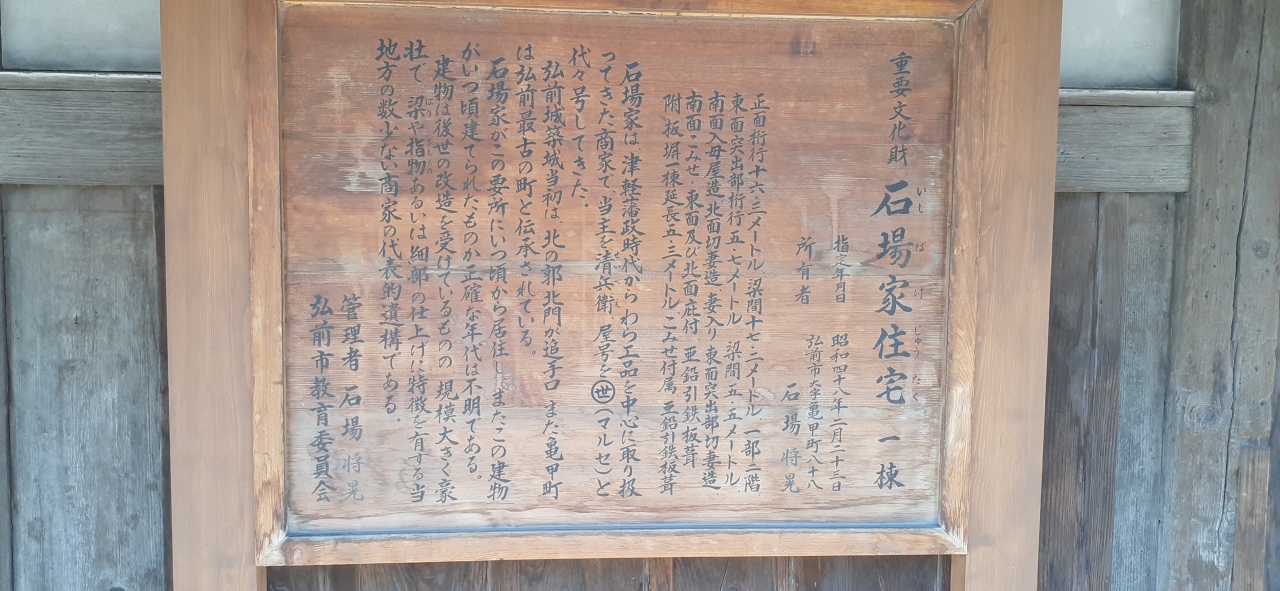 重要文化財 石場家住宅 一棟
いし ば け じゅう たく
指定年月日 昭和四十八年二月二十三日
所有者 弘前市大字亀甲町八十八
石場将晃
正面桁行十六・三メートル 梁間十七・二メートル 一部二階
東面突出部桁行五・七メートル 梁間五・五メートル
南面入母屋造 北面切妻造 妻入り 東面突出部切妻造
南面こみせ・東面及び北面庇付 亜鉛引鉄板葺
附・板塀一棟延長五・三メートル こみせ付属 亜鉛引鉄板葺
石場家は、津軽藩政時代からわら工品を中心に取り扱
ってきた商家で、当主を清兵衛、屋号を㊀(マルセ)と
せいべえ
代々号してきた。
弘前城築城当初は、北の郭北門が追手口、また亀甲町
は弘前最古の町と伝承されている。
石場家がこの要所にいつ頃から居住し、またこの建物
がいつ頃建てられたものか正確な年代は不明である。
建物は後世の改造を受けているものの、規模大きく豪
壮で、梁や指物あるいは細部の仕上げに特徴を有する当
はり さしもの
地方の数少ない商家の代表的遺構である。
管理者 石場将晃
弘前市教育委員会